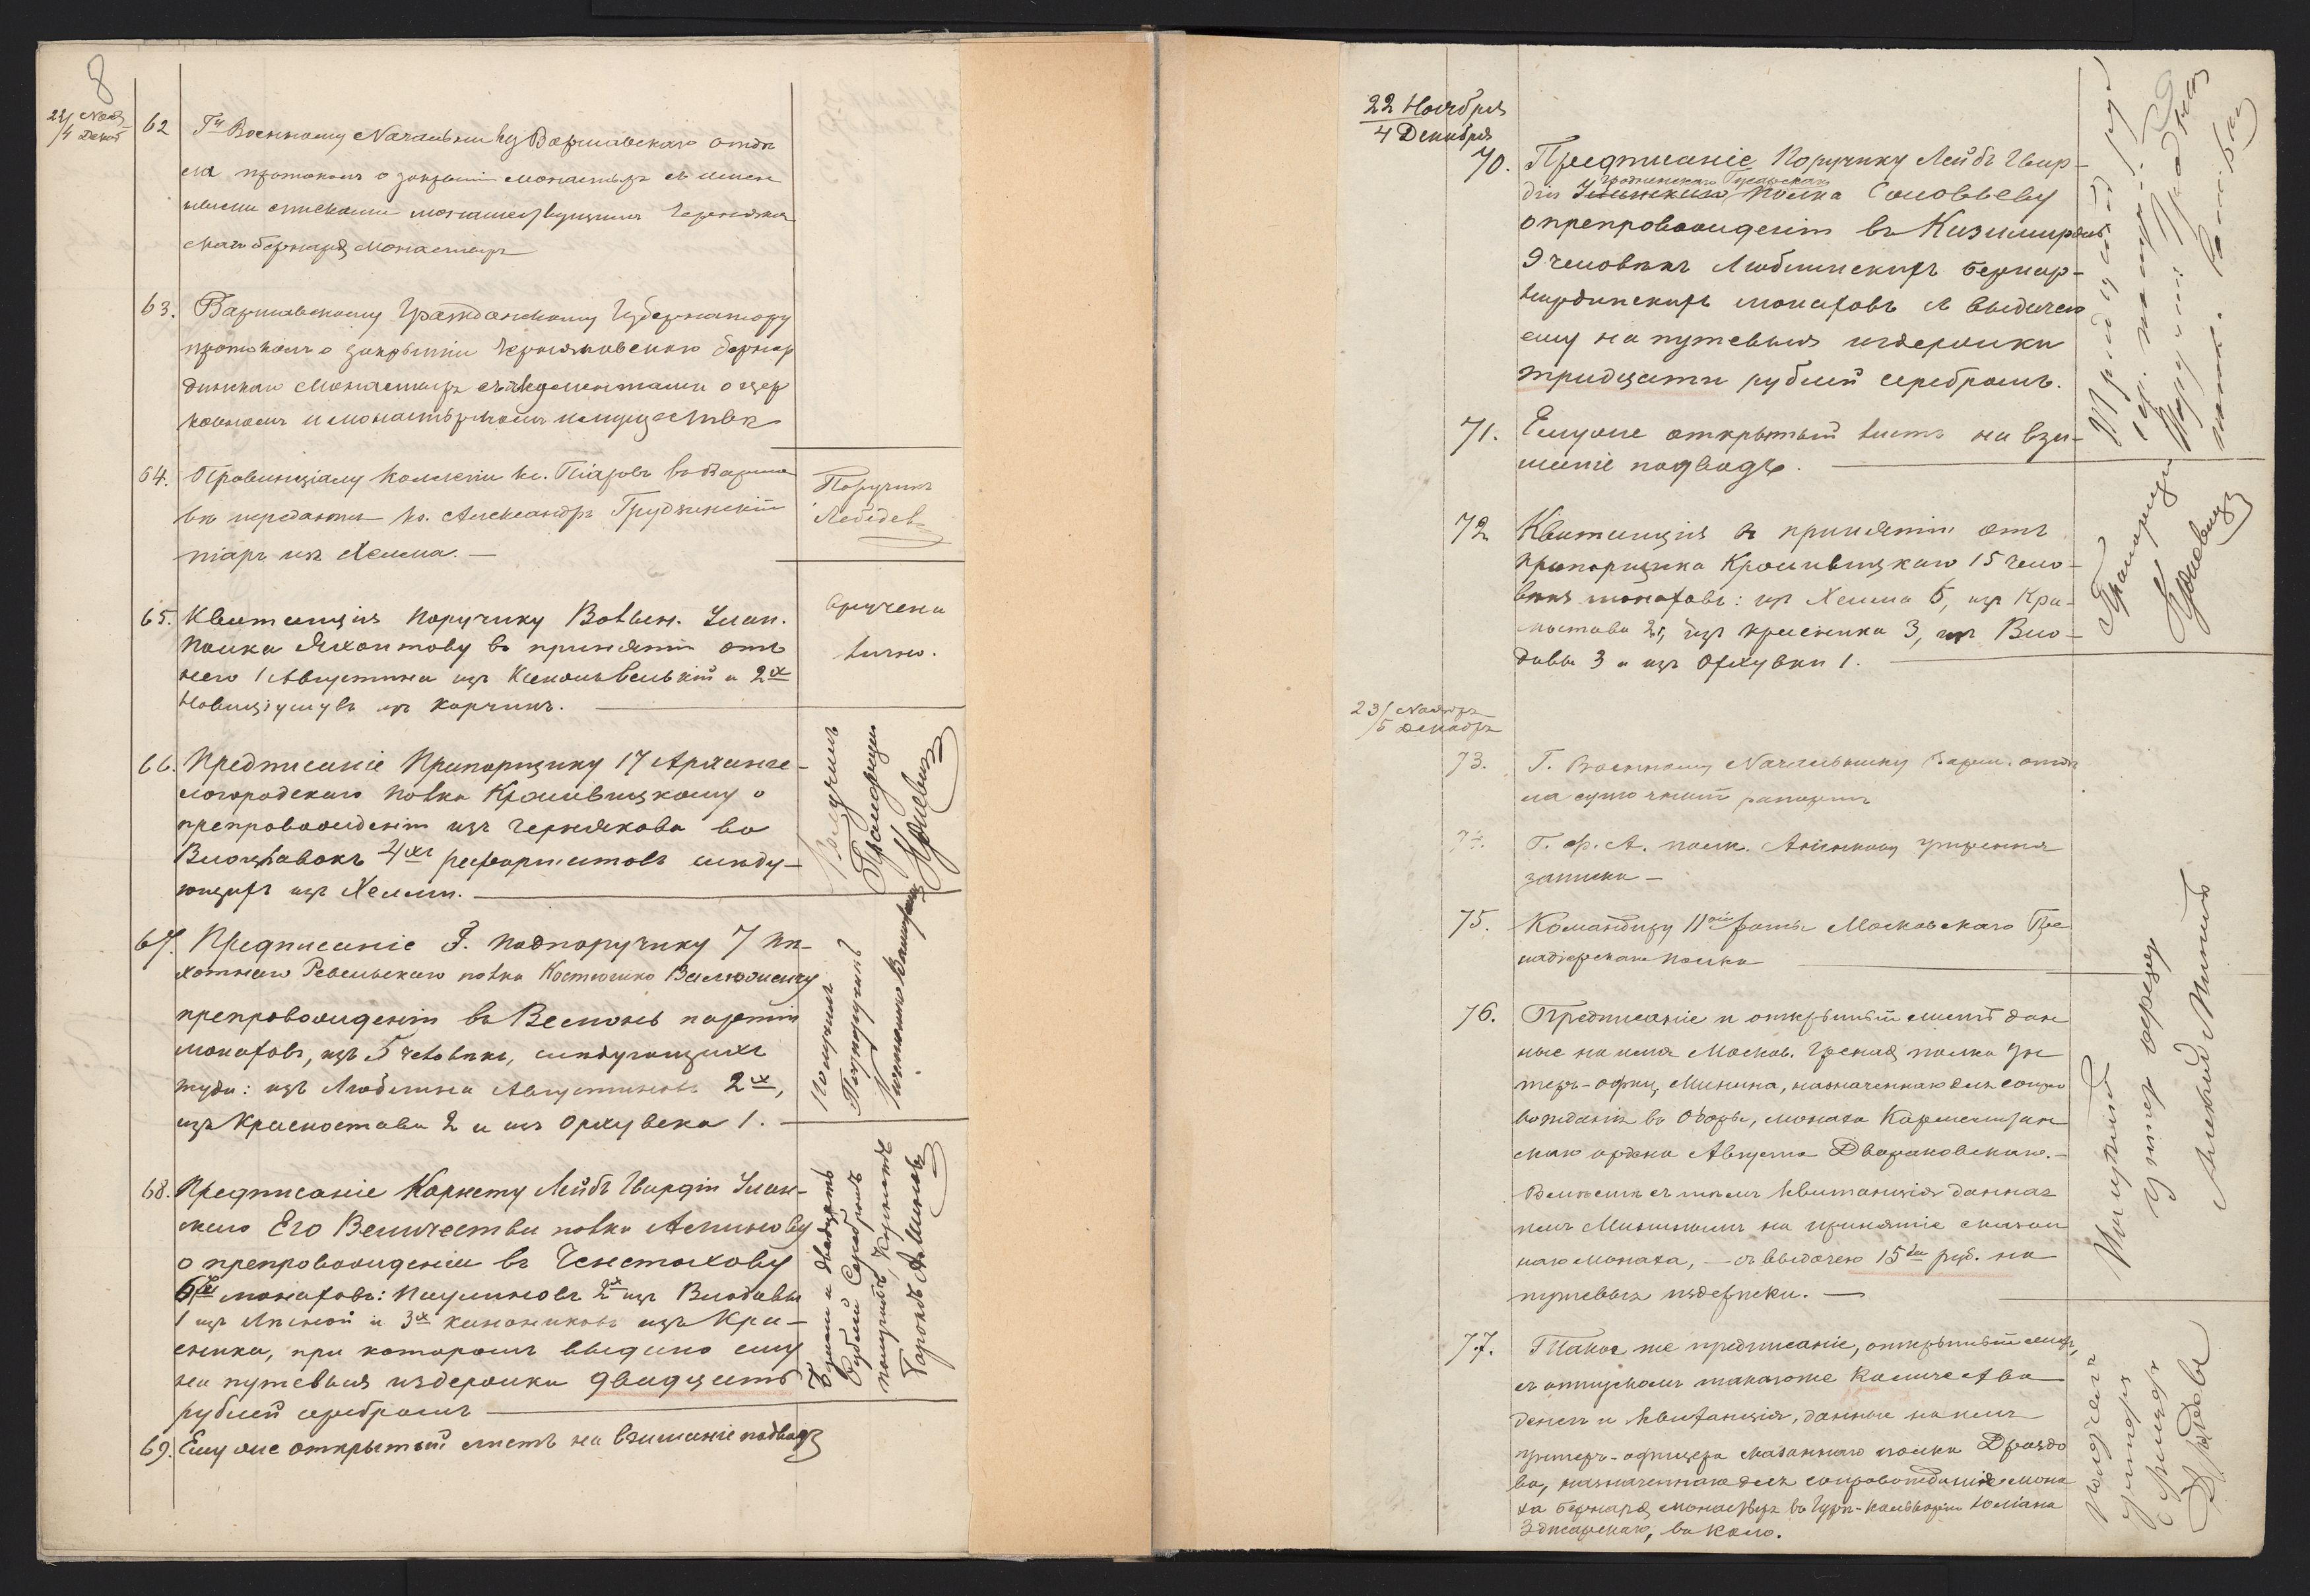 8
22/4 Нояб Декаб
62 Гну Военному Начальнику Варшавскаго отдѣ
ла протоколъ о закрытіи монастыря съ имен
ными списками монашествующимъ Черняков
скаго бернард монастыря
63. Варшавскому Гражданскому Губернатору
протоколъ о закрытіи Черняковскаго бернар
динскаго монастыря съ документами о цер
ковномъ и монастырскомъ имуществѣ
64. Провинціалу Коллегіи кс. Піаровъ въ Варша
вѣ передается кс. Александръ Грудзинскій
піаръ изъ Хелма. —
Поручикъ
Лебедев
65. Квитанція поручику Волын. Улан.
полка Яхонтову въ принятіи отъ
него 1 Августина изъ и 2хъ
изъ Корчинъ.
вручена
лично.
66. Предписаніе Прапорщику 17 Арханге-
логородскаго полка Крашивицкому о
препровожденіи изъ Чернякова во
Влоцлавокъ 4хъ реформатовъ слѣду-
ющихъ изъ Хелма.
Получилъ
Прапорщикъ
67. Предписаніе Г. подпоручику 7 пѣ-
хотнаго Ревельскаго полка Костюшко Валюжиничу
препровожденіи въ Велюнь партіи
монаховъ, изъ 5 человѣкъ, слѣдующихъ
туда: изъ Люблина Августиновъ 2хъ,
изъ Красностава 2 и изъ Орхувека 1.
Получилъ
Подпоручикъ
68. Предписаніе Корнету Лейбъ Гвардіи Улан-
скаго Его Величества полка Аминову
о препровожденіи въ Ченстохову
6ти монаховъ: Паулиновъ 2хъ изъ Влодавы
1 изъ Лѣсной и 3хъ канониковъ изъ Кра-
сника, при которомъ выдано ему
на путевыя издержки двадцать
рублей серебромъ
Бумаги и двадцать
рублей серебромъ
получилъ, Корнетъ
Баронъ Аминовъ
69. Ему же открытый листъ на взиманіе подводъ
22 Ноября
4 Декабря
70. Предписаніе Поручику Лейбъ Гвар-
Гродненскаго Гусарскаго
діи Уланскаго полка Соловьеву
о препровожденіи въ Казимиржъ
9 человѣкъ Люблинскихъ бернар-
нардинскихъ монаховъ съ выдачею
ему на путевыя издержки
тридцати рублей серебромъ.
71. Ему же открытый листъ на взи-
маніе подводъ.
Тридцать ру
сер. получ.
Поручикъ
72 Квитанція въ принятіи отъ
прапорщика Крашивицкаго 15 чело-
вѣкъ монаховъ: изъ Хелма 6, изъ Кра-
ностава 2, изъ Красника 3, изъ Вло-
давы 3 и изъ Орхувки 1.
Прапорщикъ
23/5 Ноября Декабря
73. Г. Военному Начальнику Варш. отдѣ
ла суточный рапортъ
74. Г. Ф. А. полк. Аничкову утренняя
записка —
75. Командиру 11ой роты Московскаго Гре
надерскаго полка
76. Предписаніе и открытый листъ дан
ные на имя Москов. Гренад полка Ун
теръ-офиц. Минина, назначеннаго для сопро
вожденія въ Оборы, монаха Кармелитан
скаго ордена Августа Двораковскаго. —
Вмѣстѣ съ тѣмъ квитанція данная
тѣмъ Мининымъ на принятіе сказан
наго монаха, — съ выдачею 15ти руб. на
путевыя издержки. —
Получилъ
Унтер офицер
Алексѣй Минин
77. Такое же предписаніе, открытый листъ,
съ отпускомъ такогоже количества
денегъ и квитанція, данныя на имя
унтеръ-офицера сказаннаго полка Дроздо
ва, назначеннаго для сопровожденія мона
ха бернард монастыря въ Гура-Кальваріи Юліана
въ Коло.
получилъ
унтеръ
офицеръ
Дроздовъ